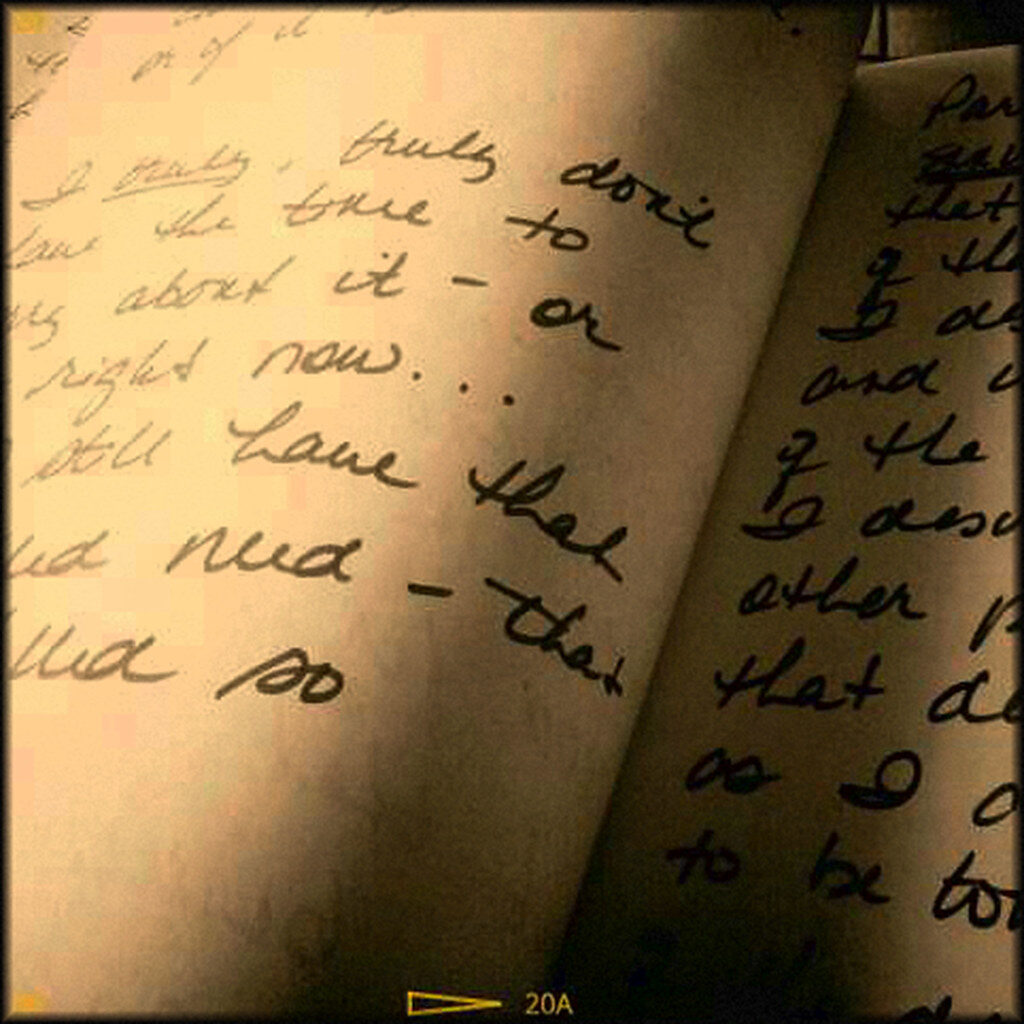 of it
I truly, truly don't
have the time to
about it - or
right now....
still have that
need - that
so
Par
that
of the
I des
and
of the
I desc
other p
that de
as I
to be tou
20A